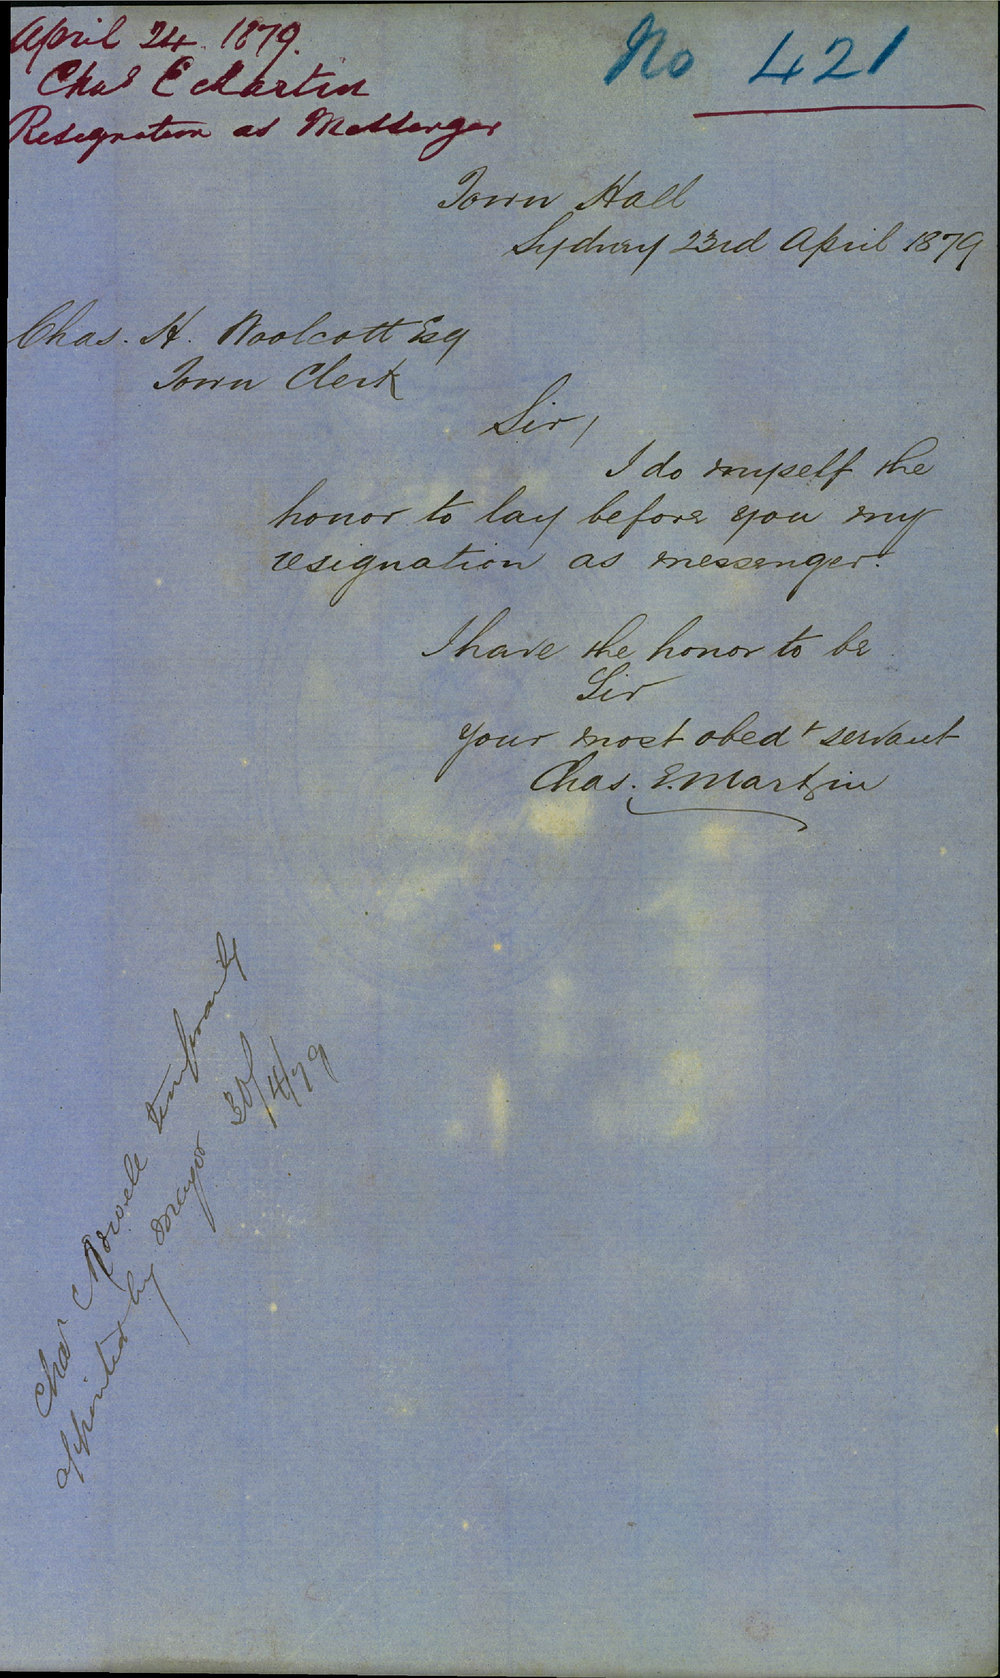 April 24. 1879.
Chas E Martin
Resignation as Messenger
No 421
Town Hall
Sydney 23rd April 1879
Chas. H. Woolcott Esq
Town Clerk
Sir,
I do myself the
honor to lay before you my
resignation as messenger.
I have the honor to be
Sir
Your most obedt servant
Chas. E. Martin
Chas temporarily
appointed by Mayor 30/4/79